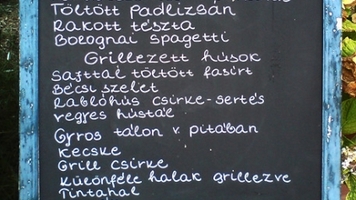 Töltött padlizsán
Rakott tészta
Bolognai spagetti
Grillezett húsok
Sajttal töltött fasírt
Bécsi szelet
Rablóhús csirke-sertés
vegyes hústál
Gyros tálon v. pitában
Kecske
Grill csirke
Különféle halak grillezve
Tintahal